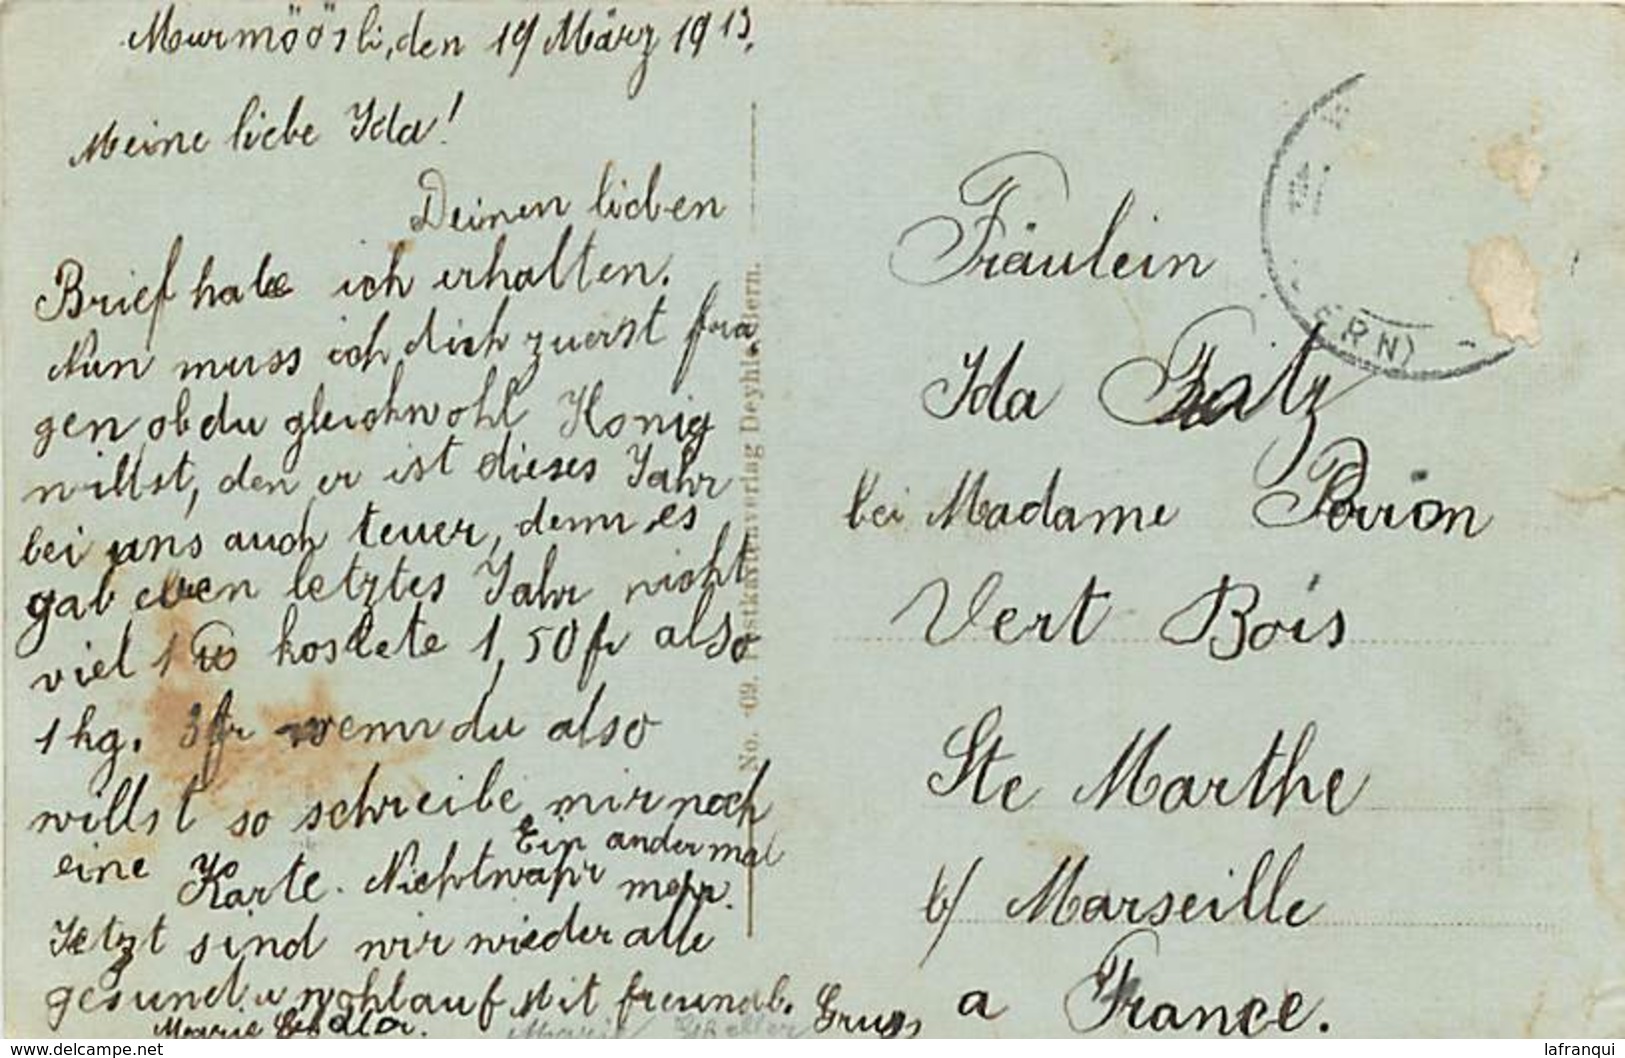 Murmöösli, den 19 März 1913.
Meine liebe Ida!
Deinen lieben
Brief habe ich erhalten.
Nun muss ich dich zuerst fra
gen, ob du gleichwohl Honig
willst, den er ist dieses Jahr
bei uns auch teuer, denn es
gab eben letztes Jahr nicht
viel 1 kostete 1,50 fr also
1 kg. 3 fr wenn du also
willst so schreibe mir noch
eine Karte. Nichtwahr Ein andermal mehr.
Jetzt sind wir wieder alle
gesund u wohlauf Mit freundl. Gruss
Marie
Marie Schaller
No. -09. Postkartenverlag Deyhle, Bern.
Fräulein
Ida Fratz
bei Madame Poiron
Vert Bois
Ste Marthe
b/ Marseille
a France.
ERN)
lafranqui